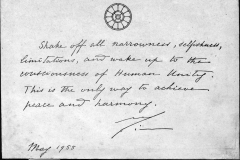 Shake off all narrowness, selfishness,
limitations, and wake up to the
consciousness of Human Unity.
This is the only way to achieve
peace and harmony.
May 1955